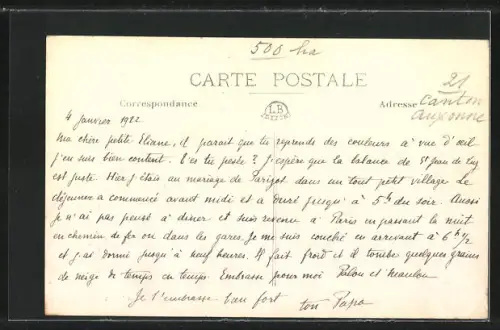 500 ha
CARTE POSTALE
Correspondance
L.B
Adresse
21
canton
auxonne
4 Janvier 1922
Ma chère petite Eliane, il parait que tu reprends des couleurs à vue d'œil
j'en suis bien content. T'es tu pesée ? J'espère que la balance de St Jean de Luz
est juste. Hier j'étais au mariage de Parizot dans un tout petit village le
déjeuner a commencé avant midi et a duré jusqu'à 5h du soir. Aussi
je n'ai pas pensé à diner et suis revenu à Paris en passant la nuit
en chemin de fer ou dans les gares. Je me suis couché en arrivant à 6h 1/2
et j'ai dormi jusqu'à neuf heures. Il fait froid et il tombe quelques grains
de neige de temps en temps. Embrasse pour moi et
Je t'embrasse bien fort
ton Papa